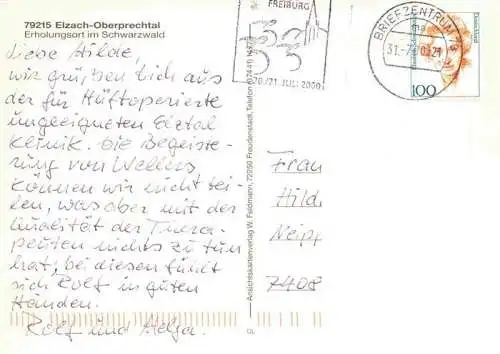 79215 Elzach-Oberprechtal
Erholungsort im Schwarzwald
Liebe Hilde,
wir grüßen Dich aus
der für Hüftoperierte
ungeeigneten Elztal
Klinik. Die Begeiste-
rung von Wellers
können wir nicht tei-
len, was aber mit der
Qualität der Thera-
peuten nichts zu tun
hat, bei diesen fühlt
sich Rolf in guten
Händen.
Rolf und Helga.
Ansichtskartenverlag W. Feldmann, 72250 Freudenstadt, Telefon (07441)
FREIBURG
20./21. JULI 2000
BRIEFZENTRUM
31.-7.
Deutschland
100
Frau
Hild
Neipp
7408